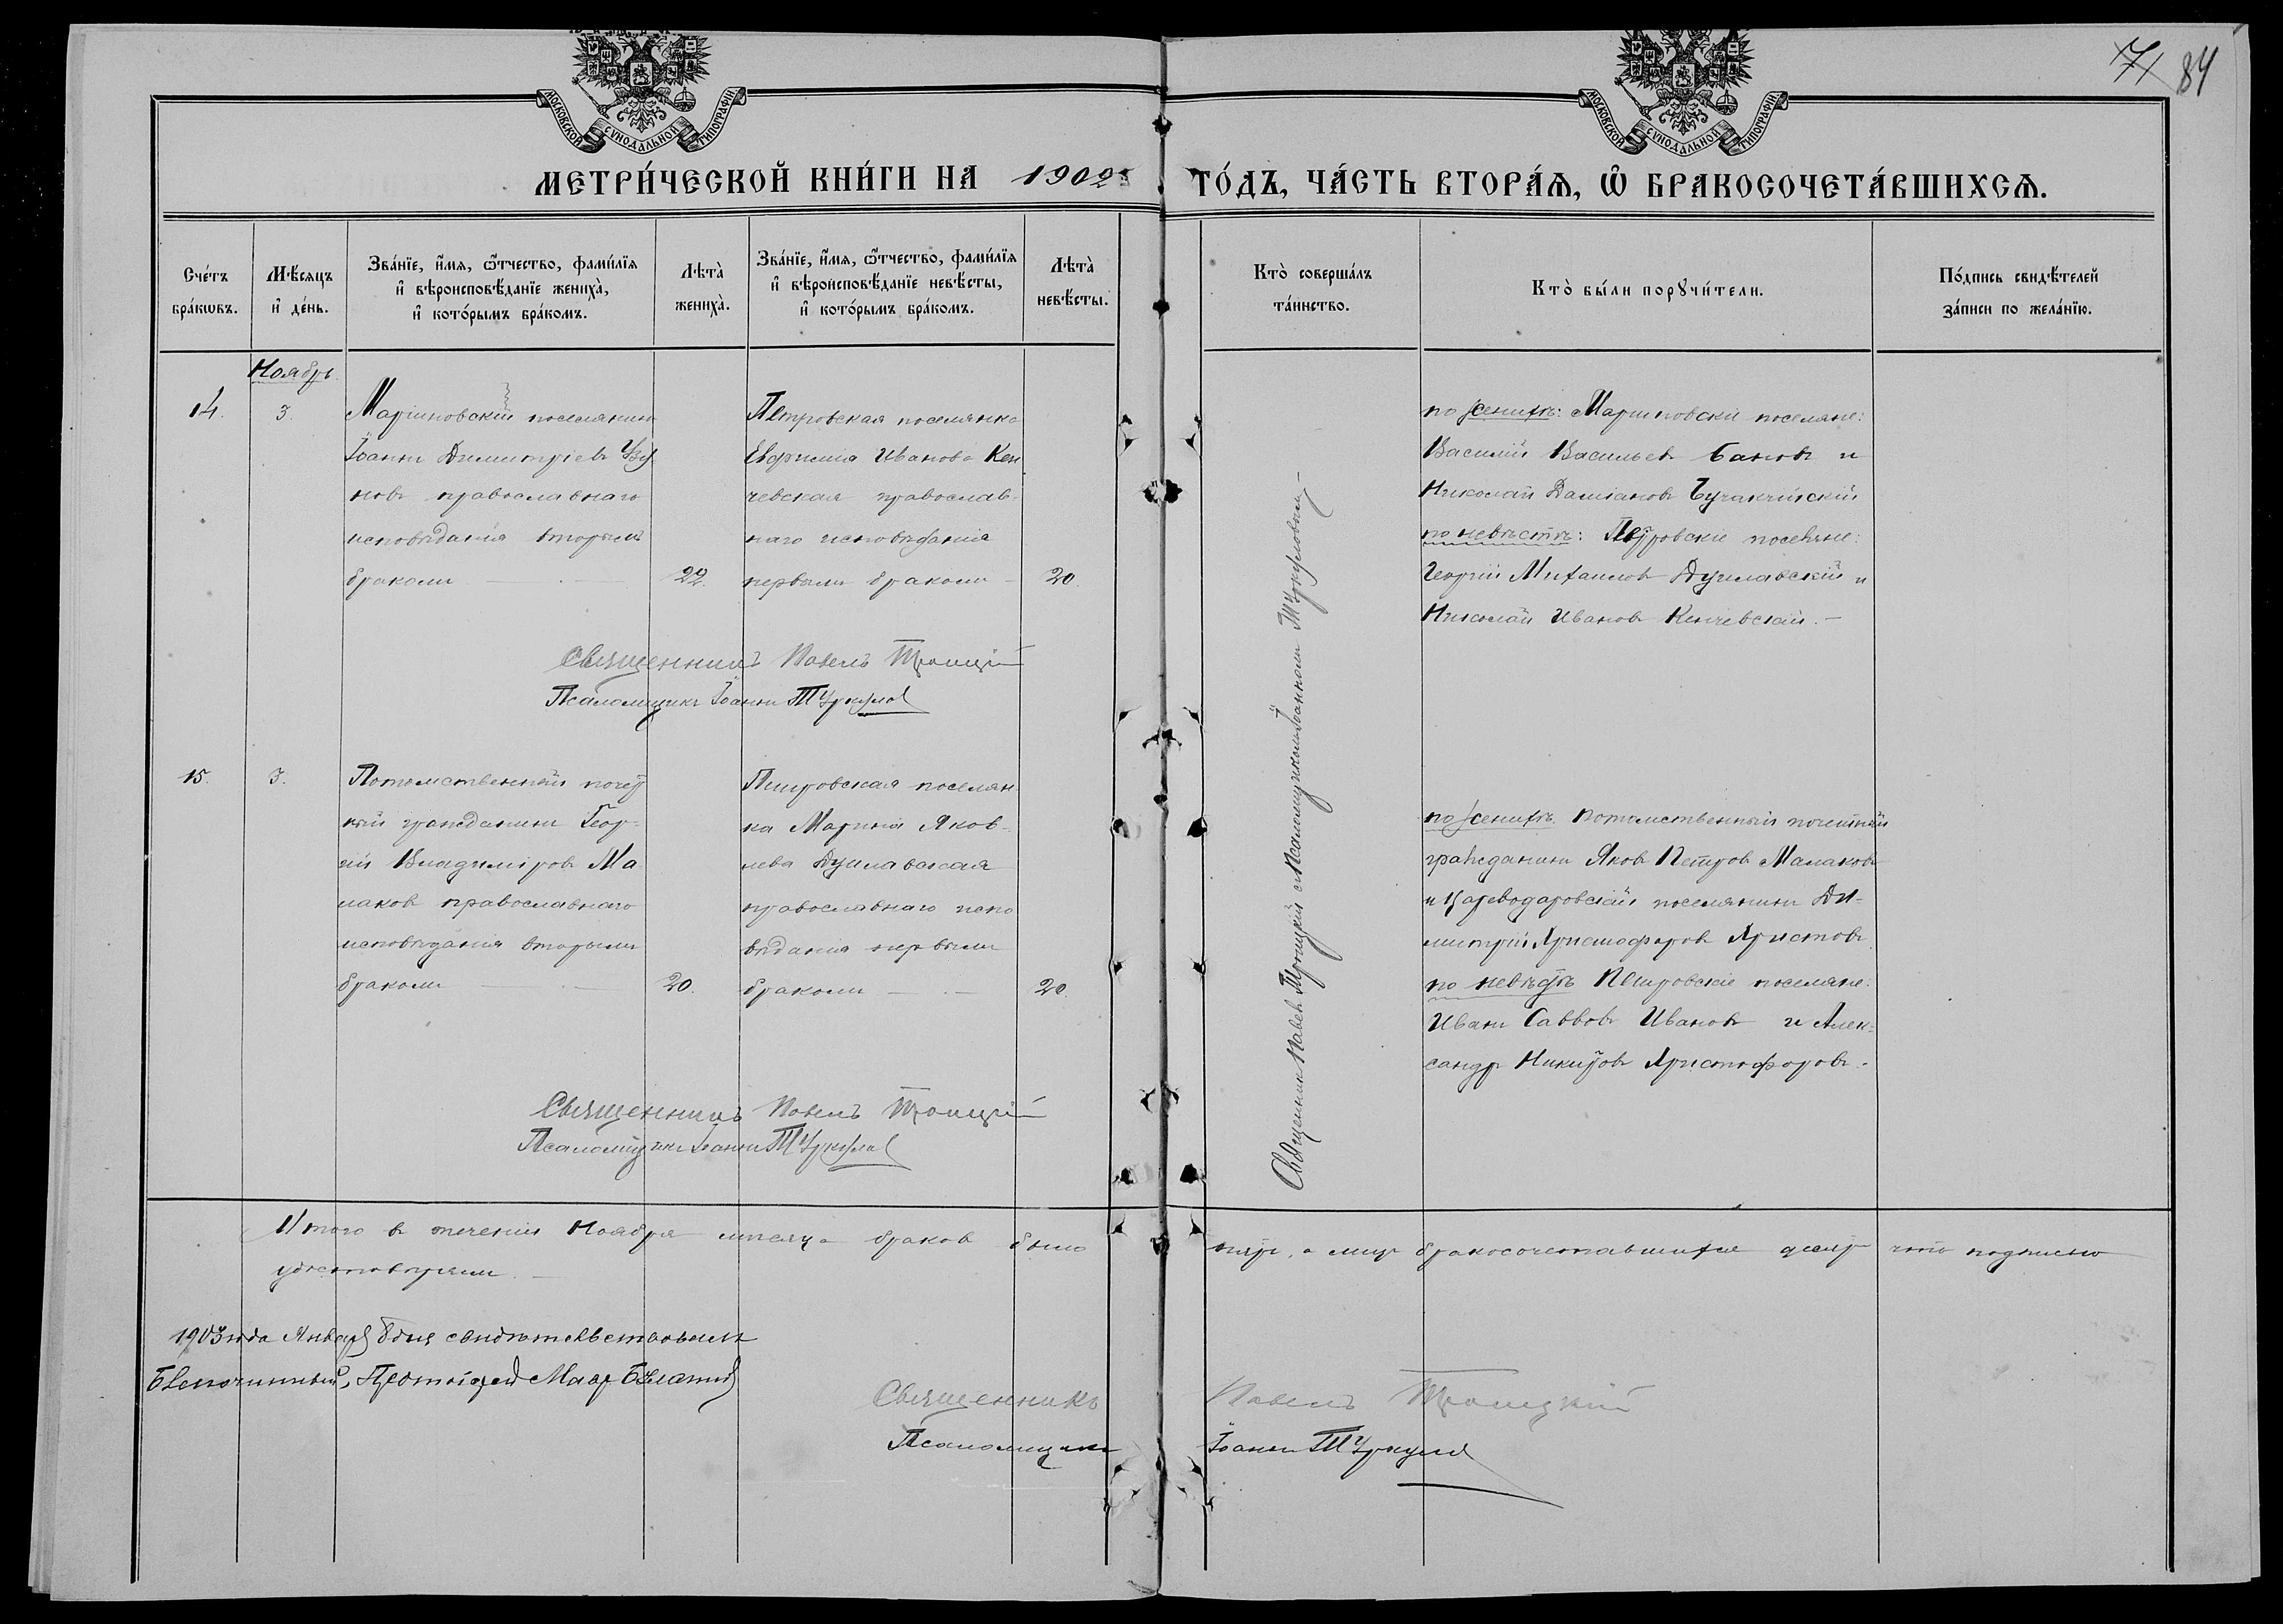 МОСКОВСКОЙ СУНОДАЛЬНОЙ ТИПОГРАФІИ
МОСКОВСКОЙ СУНОДАЛЬНОЙ ТИПОГРАФІИ
84
МЕТРИ́ЧЕСКОЙ КНИ́ГИ НА 1902 ГО́ДЪ, ЧА́СТЬ ВТОРА́Ѧ, Ѽ БРАКОСОЧЕТА́ВШИХСѦ.
Сче́тъ бра́кѡвъ.
Мѣ́сяцъ и҆ де́нь.
Зва́нїе, и҆́мя, ѻ҆́тчество, фами́лїя
и҆ вѣроисповѣ́данїе жениха̀,
и҆ кото́рымъ бра́комъ.
Лѣта̀ жениха̀.
Зва́нїе, и҆́мя, ѻ҆́тчество, фами́лїя
и҆ вѣроисповѣ́данїе невѣ́сты,
и҆ кото́рымъ бра́комъ.
Лѣта̀ невѣ́сты.
Кто̀ соверша́лъ та́инство.
Кто̀ бы́ли порꙋчи́тели.
По́дпись свидѣ́телей
за́писи по жела́нїю.
Ноябрь
14. 3.
Маріиновскій поселянинъ
Іоаннъ Димитріевъ Узу
новъ православнаго
исповѣданія вторымъ
бракомъ — 22.
Петровская поселянка
Евфимія Иванова Кен
чевская православ-
наго исповѣданія
первымъ бракомъ — 20.
Священникъ Павелъ Троицкій съ Псаломщикомъ Іоанномъ Туркуловымъ. —
по женихѣ: Маріиновскіе поселяне:
Василій Васильевъ Бановъ и
Николай Даміановъ Бучакчійскій
по невѣстѣ: Петровскіе поселяне:
Георгій Михаиловъ Душлавскій и
Николай Ивановъ Кенчевскій. —
Священникъ Павелъ Троицкій
Псаломщикъ Іоаннъ Туркулов
15. 3.
Потомственный почет
ный гражданинъ Геор-
гій Владиміровъ Ма
лаковъ православнаго
исповѣданія вторымъ
бракомъ — 20.
Петровская поселян
ка Марина Яков-
лева Душлавская
православнаго испо
вѣданія первымъ
бракомъ — 20.
по женихѣ. Потомственный почетный
гражданинъ Яковъ Петровъ Малаковъ
и Цареводаровскій поселянинъ Ди-
митрій Христофоровъ Христовъ.
по невѣстѣ Петровскіе поселяне:
Иванъ Саввовъ Ивановъ и Алек-
сандръ Никитовъ Христофоровъ.
Священникъ Павелъ Троицкій
Псаломщикъ Іоаннъ Туркулов
Итого въ теченіи Ноября мѣсяца браковъ было пять, а лицъ бракосочетавшихся десять что подписью
удостовѣряемъ. —
1903 года Января 8 дня свидѣтельствовалъ
Благочинный, Протоіерей
Священникъ Павелъ Троицкій
Псаломщикъ Іоаннъ Туркулов